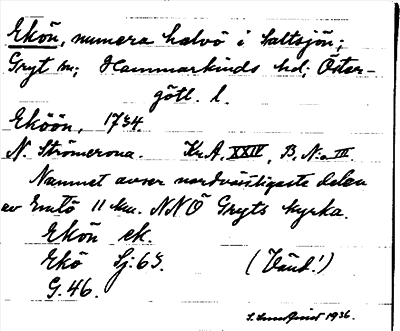 Ekön, numera halvö i Saltsjön;
Gryt sn; Hammarkinds hd; Öster-
götl. l.
Eköön, 1734.
N. Strömcrona. Kr.A. XXIV, B, N:o III.
Namnet avser nordvästligaste delen
av Emtö 11 km. NNÖ Gryts kyrka.
Ekön ek.
Ekö Sj. 63. (Vänd!)
G. 46.
1936.